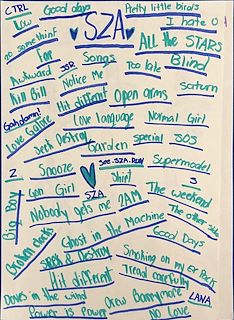 CTRL
Good days
Pretty little birds
Low
SZA
I hate U
no something
for
ALL the STARS
Songs
Too late
Blind
Awkward
JSR
Notice Me
Kill Bill
Hit different
Open arms
Saturn
Gahdamn!
Love Galore
Love language
Normal Girl
Seek Destroy
Garden
special
SOS
Z
Snooze
See.SZA.RUN
Supermodel
Shirt
S
Gon Girl
SZA
The weekend
Big Boy
Nobody gets me
2AM
The other side
Broken clocks
Ghost in the Machine
Good Days
Seek & Destroy
Smoking on my Ex Pack
Hit different
Tread carefully
Drives in the wind
Drew Barrymore
LANA
Power is Power
No Love